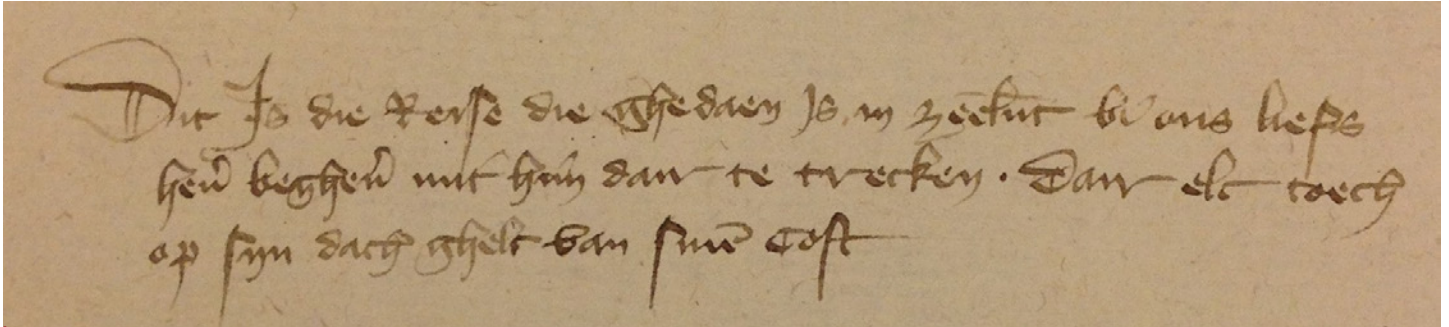 Dit Is die Reise die ghedaen Is in zeelnt bi ons liefs
hen beghen mit hm dair te trecken · Dair elc toech
op sijn dach ghelt van sine cost